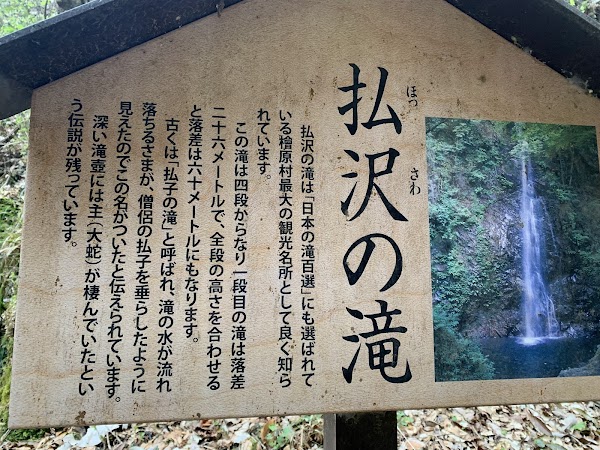 払沢の滝
ほっ
さわ
払沢の滝は「日本の滝百選」にも選ばれて
いる檜原村最大の観光名所として良く知ら
れています。
この滝は四段からなり一段目の滝は落差
二十六メートルで、全段の高さを合わせる
と落差は六十メートルにもなります。
古くは「払子の滝」と呼ばれ、滝の水が流れ
落ちるさまが、僧侶の払子を垂らしたように
見えたのでこの名がついたと伝えられています。
深い滝壺には主（大蛇）が棲んでいたとい
う伝説が残っています。